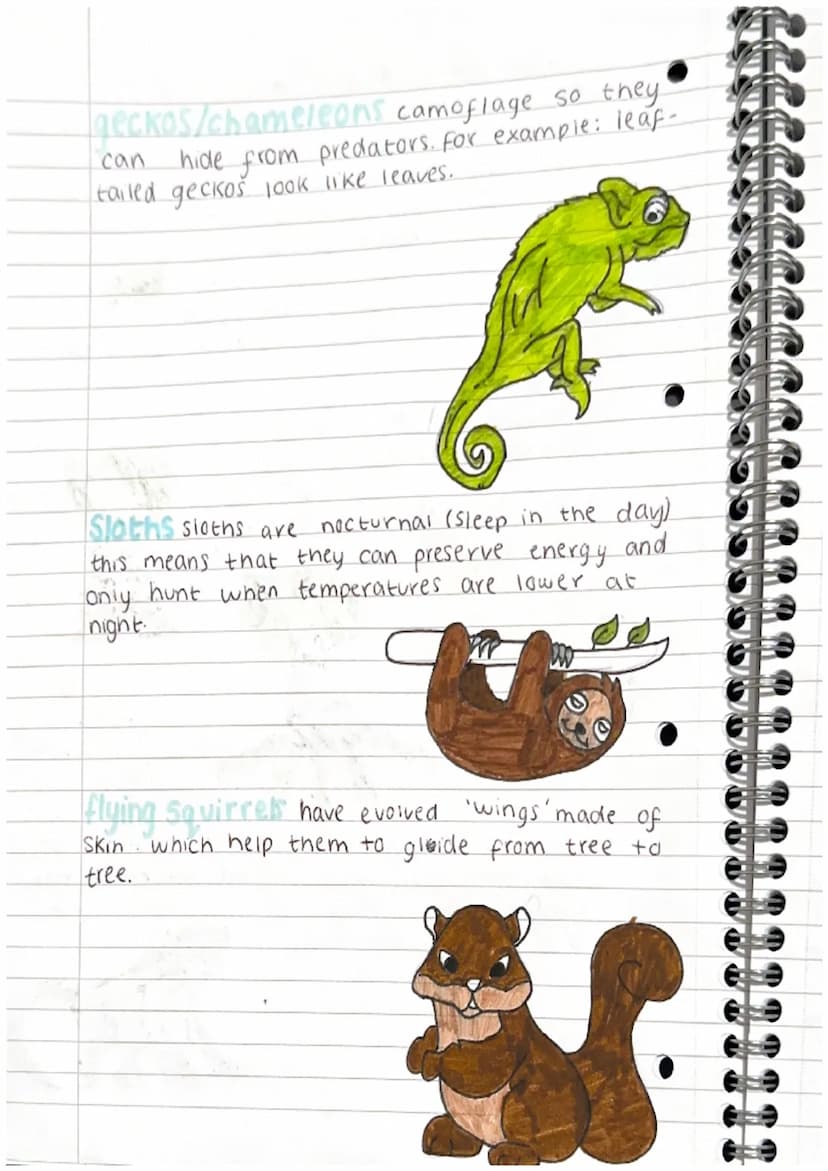 geckos/chameleons camoflage so they
can hide from predators. for example: leaf-
tailed geckos look like leaves.
Sloths sloths are nocturnal (sleep in the day)
this means that they can preserve energy and
only hunt when temperatures are lower at
night.
flying squirrels have evolved 'wings' made of
skin. which help them to gloide from tree to
tree.